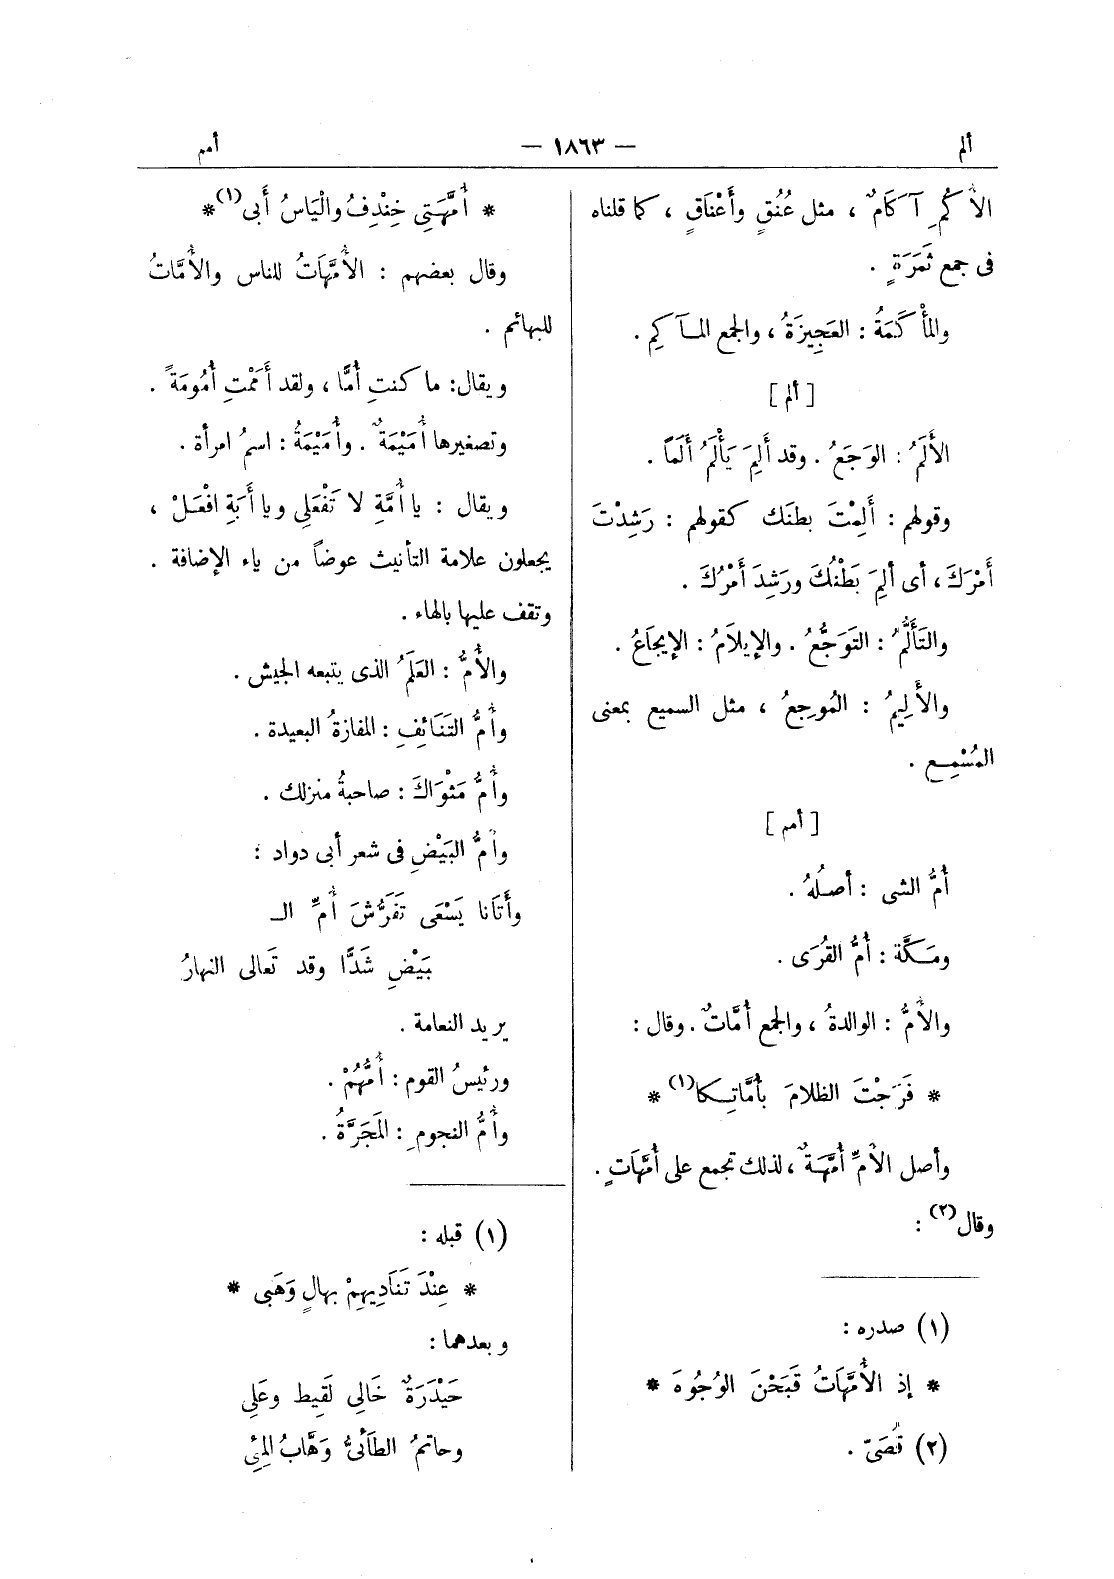 ألم
— ١٨٦٣ —
أمم
الأُكُمِ آكَامٌ ، مثل عُنُقٍ وأَعْنَاقٍ ، كما قلناه
فى جمع ثَمَرَةٍ .
والمأْكَمَةُ : العَجِيزَةُ ، والجمع المآكِم .
[ ألم ]
الأَلَمُ : الوَجَعُ . وقد أَلِمَ يَأْلَمُ أَلَمًا .
وقولهم : أَلِمْتَ بطنَك كقولهم : رَشِدْتَ
أَمْرَكَ ، أى ألِمَ بَطْنُكَ ورَشِدَ أَمْرُكَ .
والتَأَلُّمُ : التَوَجُّعُ . والإيلَامُ : الإيجَاعُ .
والأَلِيمُ : المُوجِعُ ، مثل السميع بمعنى
المُسْمِع .
[ أمم ]
أُمُّ الشى : أصلُهُ .
ومَكَّة : أُمُّ القُرَى .
والأُمُّ : الوالدةُ ، والجمع أُمَّاتٌ . وقال :
* فَرَجْتَ الظلامَ بأُمَّاتِكا(١) *
وأصل الأُمِّ أُمَّهَةٌ ، لذلك تجمع على أُمَّهَاتٍ .
وقال(٢) :
(١) صدره :
* إذ الأُمَّهَاتُ قَبَحْنَ الوُجُوهَ *
(٢) قُصَىّ .
* أُمَّهَتِى خِنْدِفُ والْيَاسُ أَبى(١) *
وقال بعضهم : الأُمَّهَاتُ للناس والأُمَّاتُ
للبهائم .
ويقال: ما كنتِ أُمًّا ، ولقد أَمَمْتِ أُمُومَةً .
وتصغيرها أُمَيْمَةٌ . وأُمَيْمَةُ : اسمُ امرأة .
ويقال : يا أُمَّةِ لا تَفْعَلِى ويا أَبَةِ افْعَلْ ،
يجعلون علامة التأنيث عوضاً من ياء الإضافة .
وتقف عليها بالهاء .
والأُمُّ : العَلَمُ الذى يتبعه الجيش .
وأُمُّ التَنَائِفِ : المفازةُ البعيدة .
وأُمُّ مَثْوَاكَ : صاحبةُ منزلك .
وأُمُّ البَيْضِ فى شعر أبى دواد :
وأَتَانا يَسْعَى تَفَرُّشَ أُمِّ الـ
بَيْضِ شَدًّا وقد تَعالى النهارُ
يريد النعامة .
ورئيسُ القوم : أُمُّهُمْ .
وأُمُّ النجومِ : المَجَرَّةُ .
(١) قبله :
* عِنْدَ تَنَادِيهِمْ بهالٍ وَهَبى *
وبعدهما :
حَيْدَرَةٌ خَالِى لَقِيط وعَلِى
وحاتمُ الطَأَئىُّ وَهَّابُ المِئِى